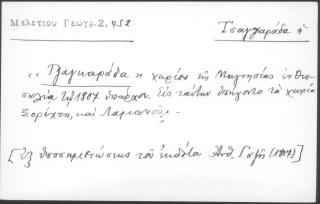 Μελετίου Γεωγρ. 2, 452
Τσαγκαράδα ἡ
«Τζαγκαράδα» χωρίον τῆς Μαγνησίας ἐν Θεσ-
σαλίᾳ τῷ 1807 ὑπάρχον. Εἰς ταύτην ὑπήγοντο τὰ χωρία
Ξορύχτη, καὶ
[ἐξ ὑποσημειώσεως τοῦ ἐκδότου Ἀνθ. Γαζῆ (1807)]